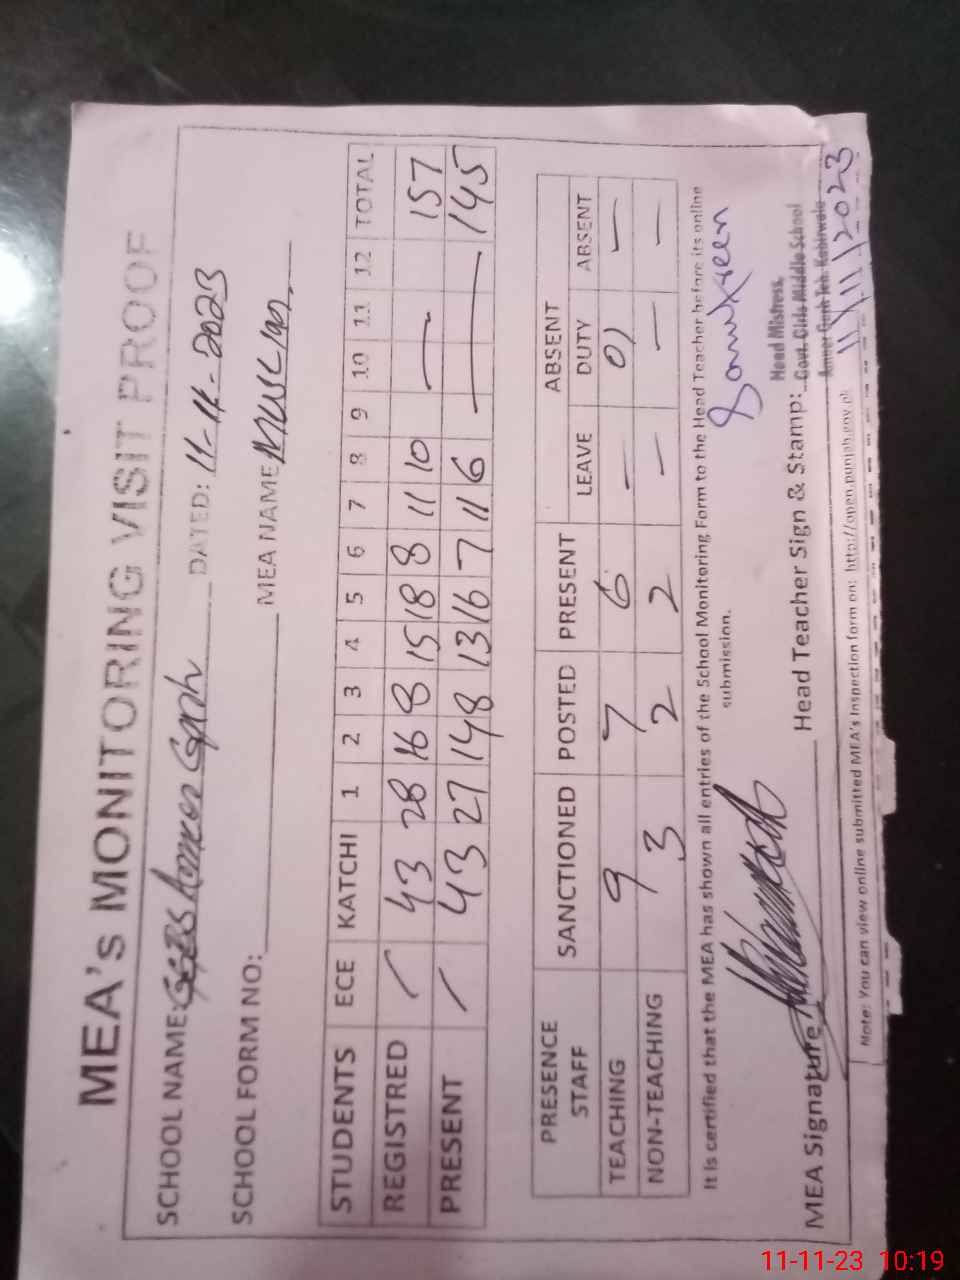 MEA's MONITORING VISIT PROOF
SCHOOL NAME: GGES Ameer Garh DATED: 11-11-2023
SCHOOL FORM NO: MEA NAME
STUDENTS ECE KATCHI 1 2 3 4 5 6 7 8 9 10 11 12 TOTAL
REGISTRED / 43 28 16 8 15 18 8 11 10 — 157
PRESENT / 43 27 14 8 13 16 7 11 6 — 145
PRESENCE STAFF SANCTIONED POSTED PRESENT ABSENT
LEAVE DUTY ABSENT
TEACHING 9 7 6 — 01 —
NON-TEACHING 3 2 2 — — —
It is certified that the MEA has shown all entries of the School Monitoring Form to the Head Teacher before its online
submission.
Head Mistress,
MEA Signature Head Teacher Sign & Stamp: Govt. Girls Middle School
Ameer Garh Teh. Kabirwala
11/11/2023
Note: You can view online submitted MEA's Inspection form on: http://open.punjab.gov.pk
11-11-23 10:19